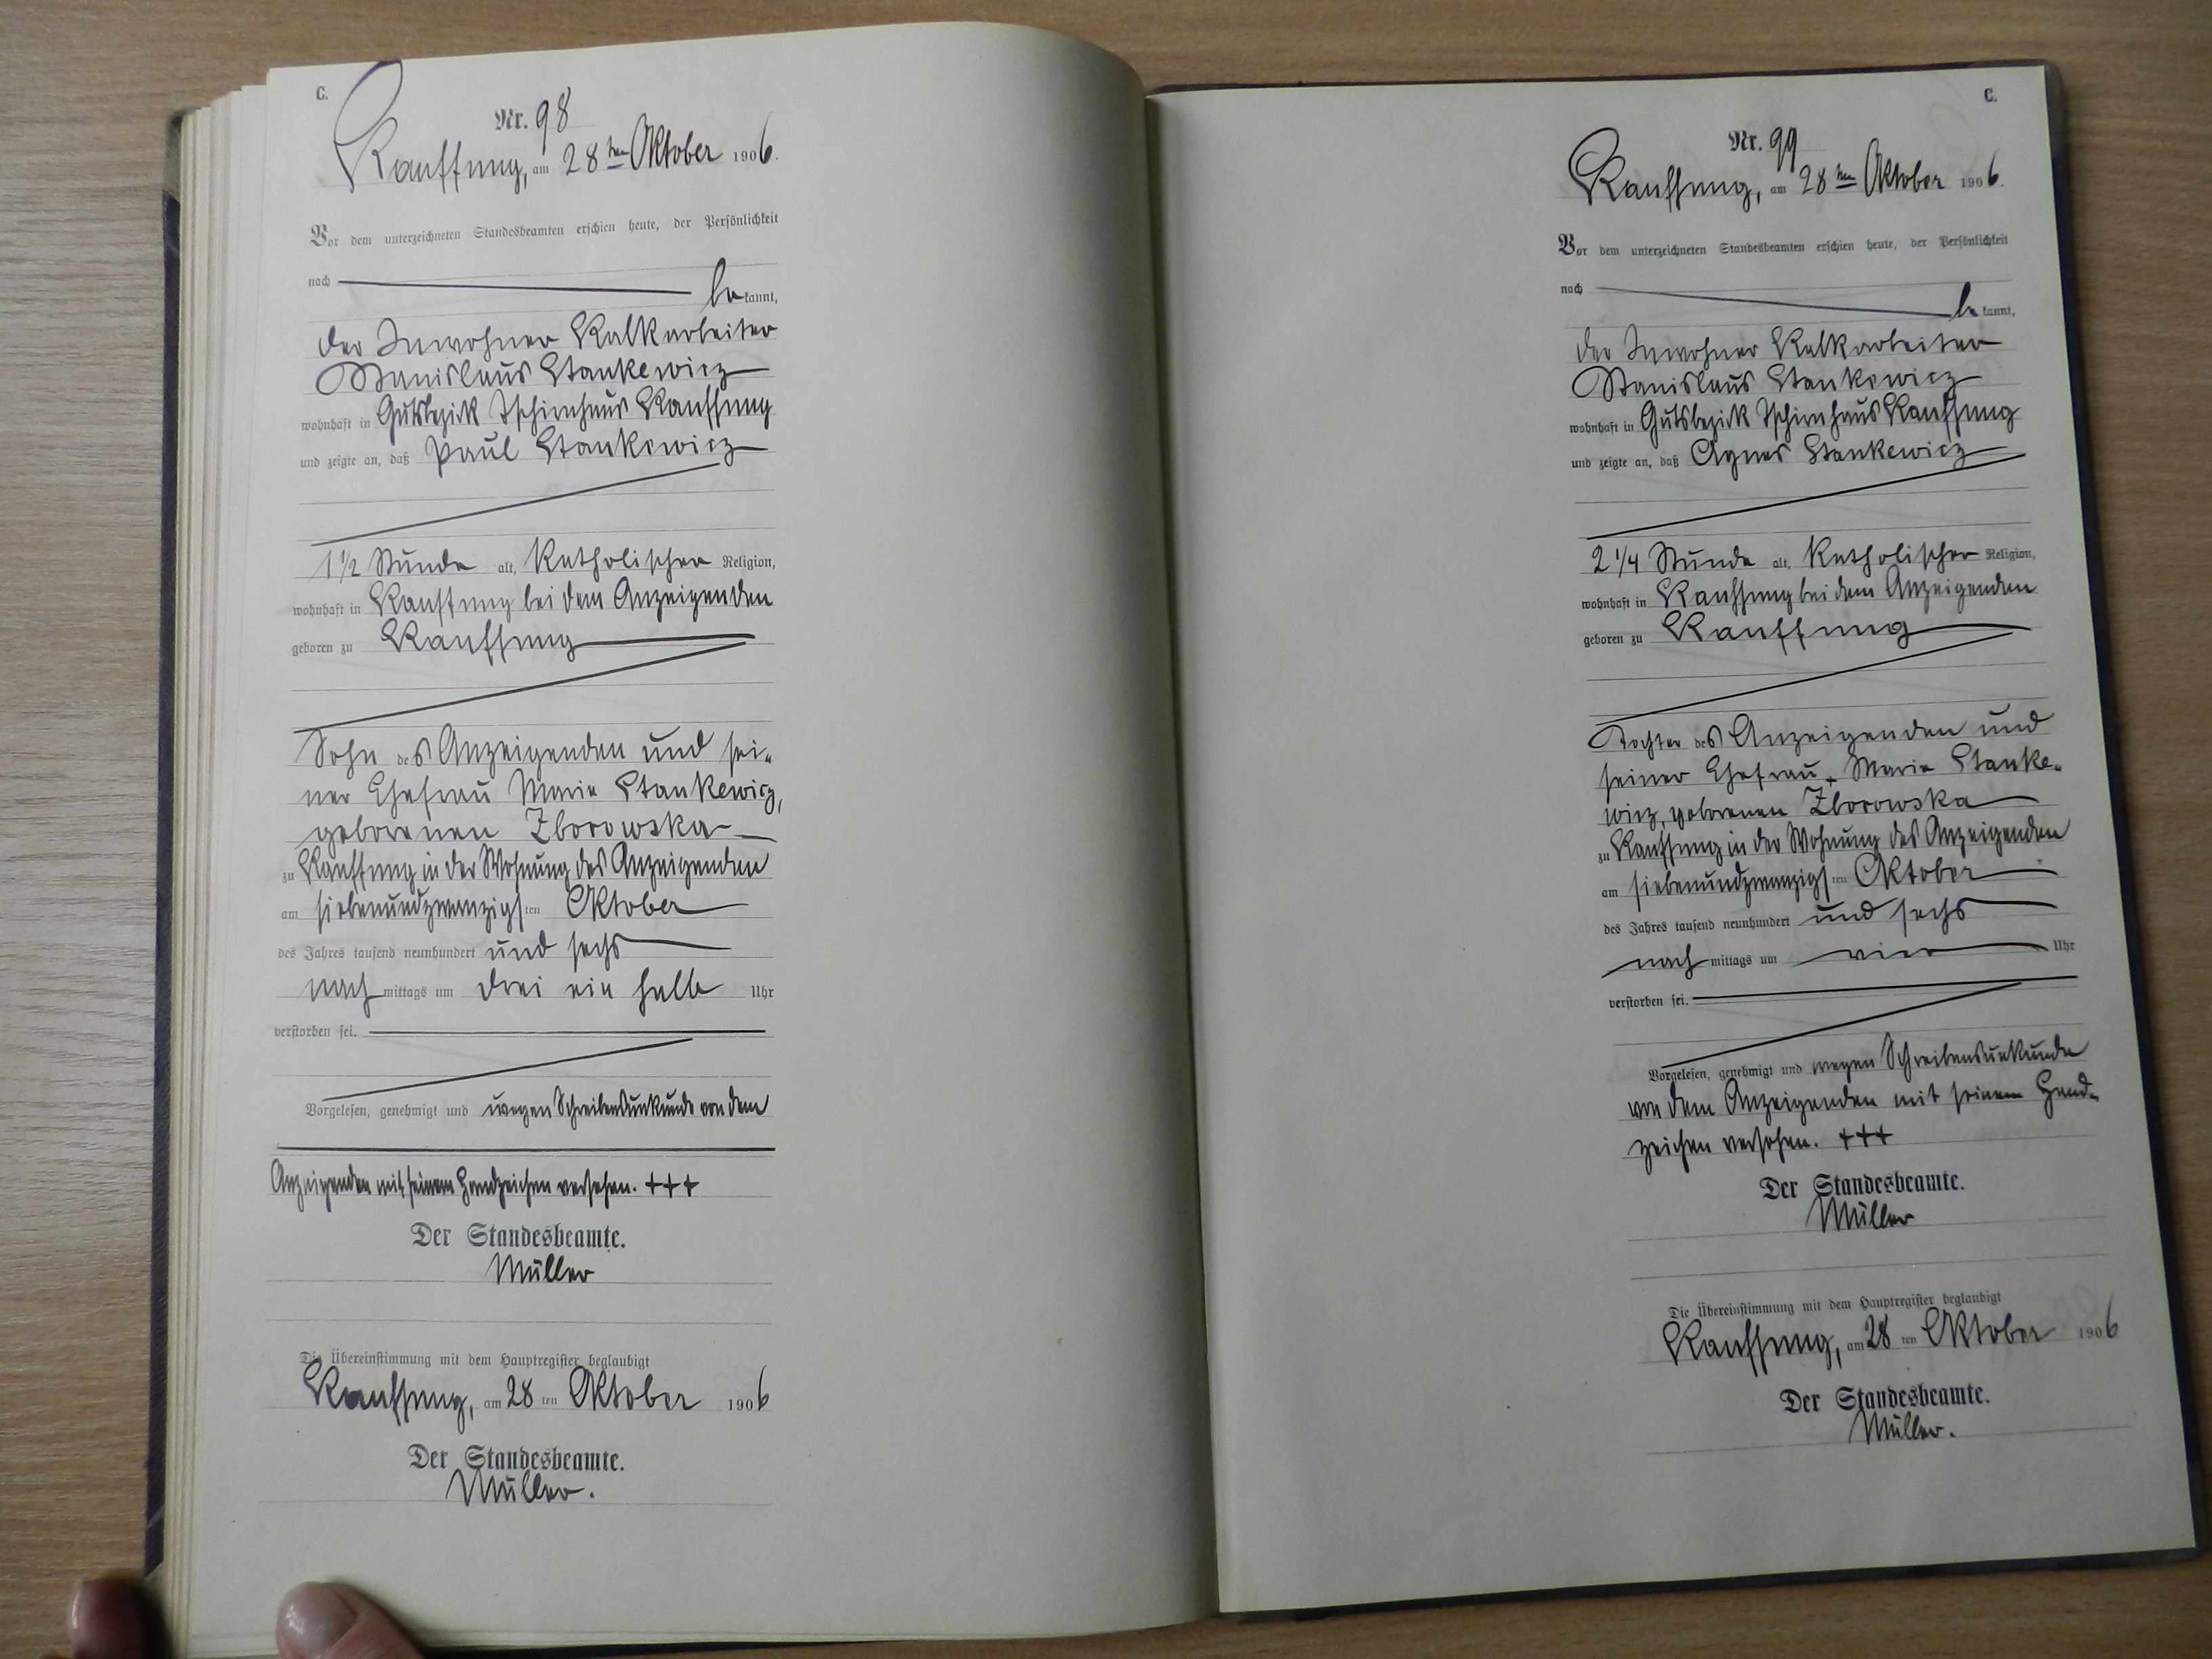 C.
Nr. 98
Kauffung, am 28ten Oktober 1906.
Vor dem unterzeichneten Standesbeamten erschien heute, der Persönlichkeit
nach bekannt,
der Inwohner Kalkarbeiter
Stanislaus Stankewicz
wohnhaft in Gutsbezirk Tschirnhaus Kauffung
und zeigte an, daß Paul Stankewicz
1 1/2 Stunde alt, katholischer Religion,
wohnhaft in Kauffung bei dem Anzeigenden
geboren zu Kauffung
Sohn des Anzeigenden und sei-
ner Ehefrau Marie Stankewicz,
geborenen Zborowska
zu Kauffung in der Wohnung des Anzeigenden
am siebenundzwanzigsten Oktober
des Jahres tausend neunhundert und sechs
nachmittags um drei ein halb Uhr
verstorben sei.
Vorgelesen, genehmigt und wegen Schreibensunkunde von dem
Anzeigenden mit seinem Handzeichen versehen. +++
Der Standesbeamte.
Müller
Die Übereinstimmung mit dem Hauptregister beglaubigt
Kauffung, am 28 ten Oktober 1906
Der Standesbeamte.
Müller.
C.
Nr. 99
Kauffung, am 28ten Oktober 1906.
Vor dem unterzeichneten Standesbeamten erschien heute, der Persönlichkeit
nach bekannt,
der Inwohner Kalkarbeiter
Stanislaus Stankewicz
wohnhaft in Gutsbezirk Tschirnhaus Kauffung
und zeigte an, daß Agnes Stankewicz
2 1/4 Stunde alt, katholischer Religion,
wohnhaft in Kauffung bei dem Anzeigenden
geboren zu Kauffung
Tochter des Anzeigenden und
seiner Ehefrau Marie Stanke-
wicz, geborenen Zborowska
zu Kauffung in der Wohnung des Anzeigenden
am siebenundzwanzigsten Oktober
des Jahres tausend neunhundert und sechs
nachmittags um vier Uhr
verstorben sei.
Vorgelesen, genehmigt und wegen Schreibensunkunde
von dem Anzeigenden mit seinem Hand-
zeichen versehen. +++
Der Standesbeamte.
Müller
Die Übereinstimmung mit dem Hauptregister beglaubigt
Kauffung, am 28 ten Oktober 1906
Der Standesbeamte.
Müller.